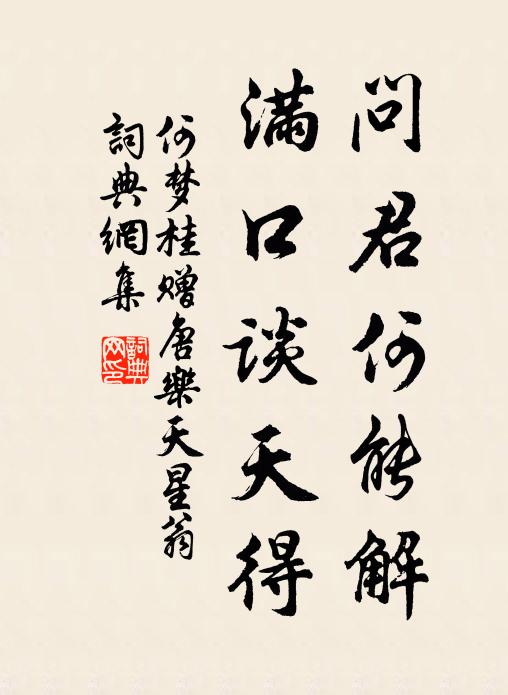 问君何能解
满口谈天得
何梦桂赠唐樂天星翁
詞典網集
詞典网印